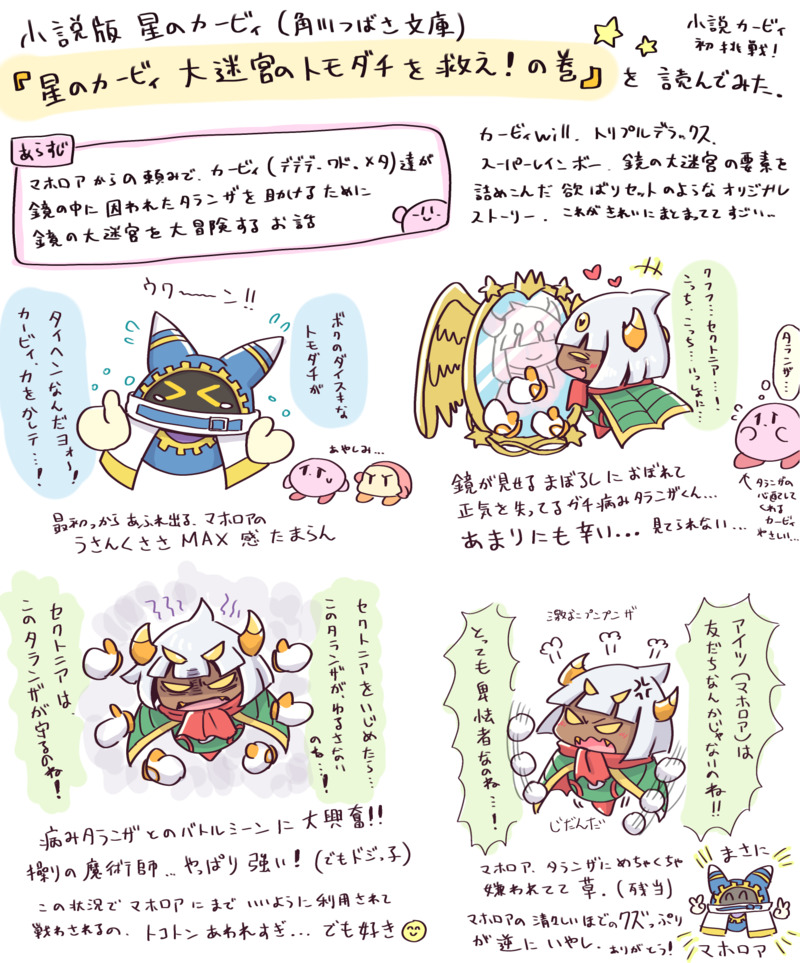 小説版 星のカービィ(角川つばさ文庫)
『星のカービィ 大迷宮のトモダチを救え!の巻』を読んでみた.
小説カービィ
初挑戦!
あらすじ
マホロアからの頼みで、カービィ(デデデ、ワド、メタ)達が
鏡の中に囚われたタランザを助けるために
鏡の大迷宮を大冒険するお話
カービィWii、トリプルデラックス、
スーパーレインボー、鏡の大迷宮の要素を
詰めこんだ欲ばりセットのようなオリジナル
ストーリー. これがきれいにまとまっててすごい…
ウワ〜〜ン!!
ボクのダイスキな
トモダチが
タイヘンなんだヨォー!
カービィ、力をかしテ…!
あやしみ…
最初っからあふれ出る、マホロアの
うさんくささMAX感たまらん
クフフ…セクトニア…!
こっち、こっち…いっしょに…
タランザ…
↑タランザの
心配して
くれる
カービィ
やさしい…
鏡が見せるまぼろしにおぼれて
正気を失ってるガチ病みタランザくん…
あまりにも辛い…見てられない…
セクトニアをいじめたら…
このタランザがゆるさない
のね…!
セクトニアは、
このタランザが守るのね!
病みタランザとのバトルシーンに大興奮!!
操りの魔術師…やっぱり強い!(でもドジっ子)
この状況でマホロアにまでいいように利用されて
戦わされるの、トコトンあわれすぎ…でも好き
激おこプンプンザ
アイツ(マホロア)は
友だちなんかじゃないのね!!
とっても卑怯者なのね…!
じだんだ
マホロア、タランザにめちゃくちゃ
嫌われてて草.(残当)
マホロアの清々しいほどのクズっぷり
が逆にいやし、ありがとう!
まさに
マホロア